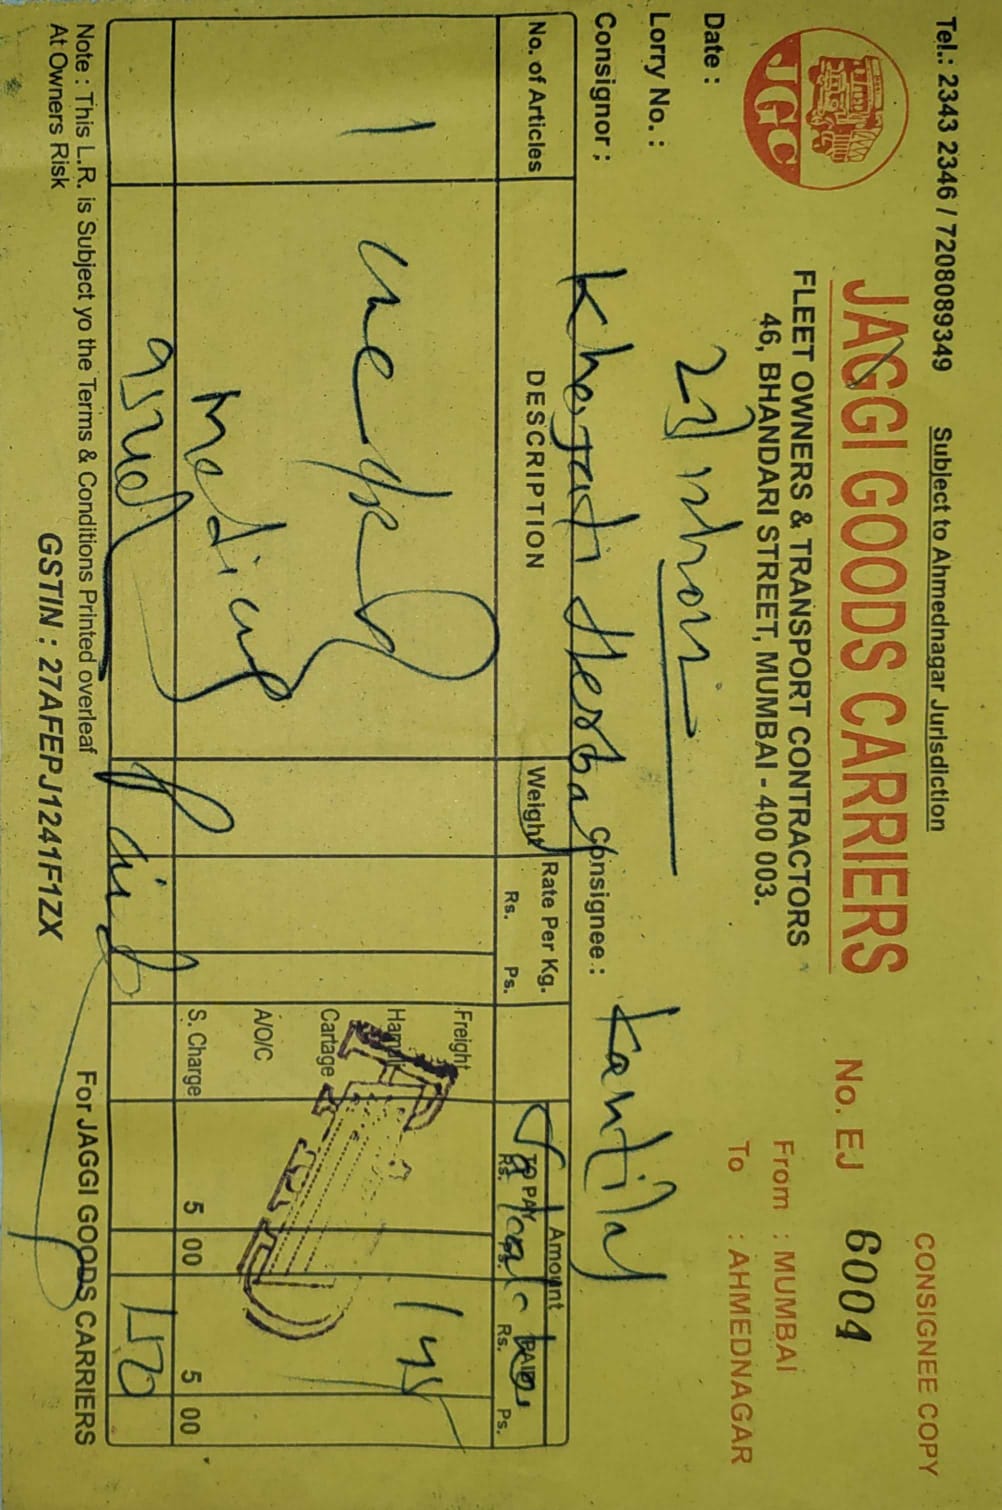 Tel.: 2343 2346 / 7208089349 Subject to Ahmednagar Jurisdiction
CONSIGNEE COPY
JGC
JAGGI GOODS CARRIERS
No. EJ 6004
FLEET OWNERS & TRANSPORT CONTRACTORS
46, BHANDARI STREET, MUMBAI - 400 003.
From : MUMBAI
To : AHMEDNAGAR
Date :
Lorry No. :
Consignor ; Consignee : Kantilal
No. of Articles DESCRIPTION Weight Rate Per Kg. Amount
Rs. Ps. TO PAY Rs. Ps. PAID Rs. Ps.
1
Freight 145
Hamali
Cartage
A/O/C
S. Charge 5 00 5 00
Paid 150
Note : This L.R. is Subject yo the Terms & Conditions Printed overleaf
At Owners Risk
For JAGGI GOODS CARRIERS
GSTIN : 27AFEPJ1241F1ZX